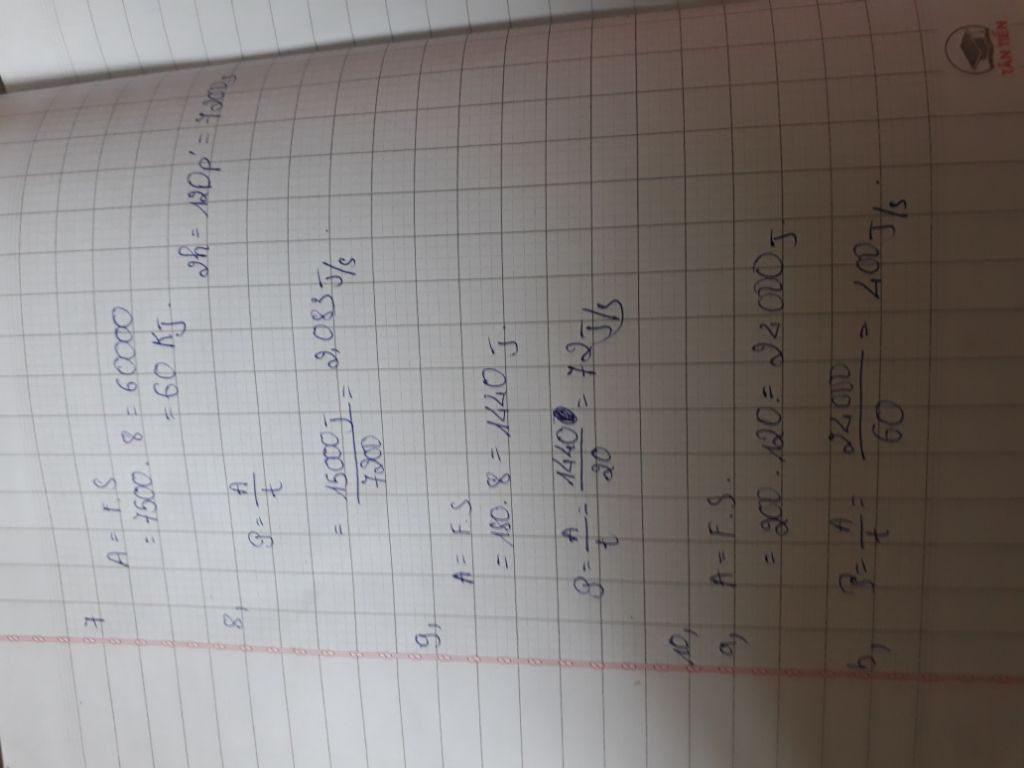 7
A = F.S
= 7500. 8 = 60000
= 60 KJ.
8,
2h = 120p' = 7200s
P = A/t
= 15000J/7200 = 2,083 J/s
9,
A = F.S
= 180. 8 = 1440 J.
P = A/t = 1440/20 = 72 J/s
10,
a, A = F.S.
= 200.120 = 24000 J
b, P = A/t = 24000/60 = 400 J/s.
TÂN TIẾN